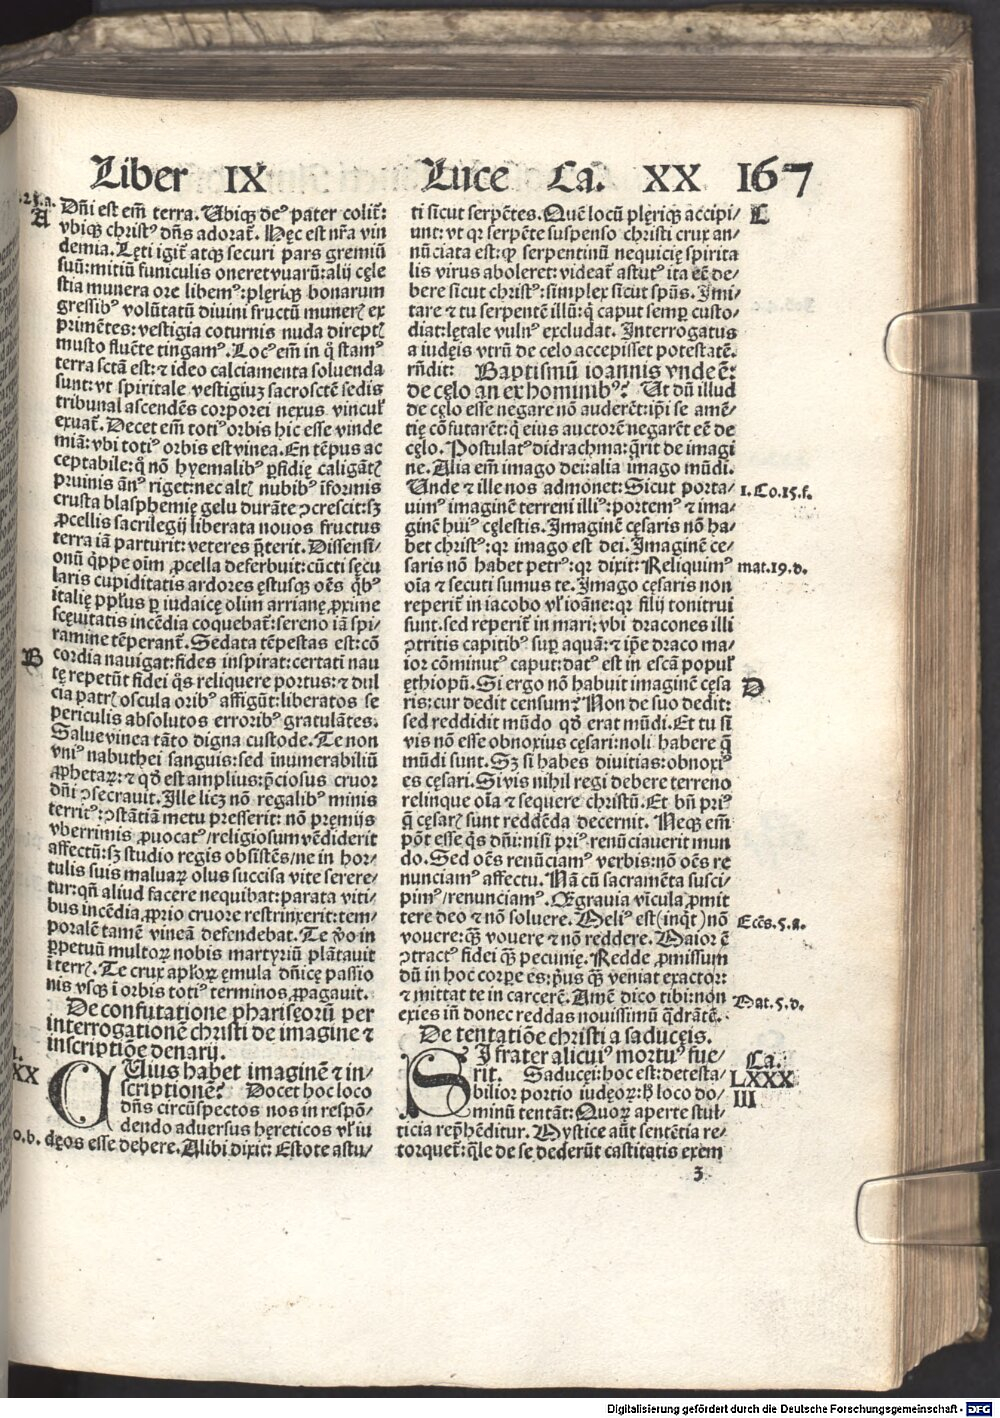 Liber IX Luce Ca. XX 167
.24.a.
A
Dñi est em̃ terra. Ubiqꝫ de⁹ pater colit̃:
vbiqꝫ christ⁹ dñs adorat̃. Hęc est nr̃a vin
demia. Lęti igit̃ atqꝫ securi pars gremiũ
suũ: mitiũ funiculis oneret vuarũ: alij cęle
stia munera ore libem⁹: plęriqꝫ bonarum
gressib⁹ volũtatũ diuini fructũ munerꝭ ex
primẽtes: vestigia coturnis nuda direptꝭ
musto fluẽte tingam⁹. Loc⁹ em̃ in q̊ stam⁹
terra sctã est: ⁊ ideo calciamenta soluenda
sunt: vt spiritale vestigiuꝫ sacrosctẽ sedis
tribunal ascendẽs corporei nexus vincul̕
exuat̃. Decet em̃ toti⁹ orbis hic esse vinde
miã: vbi toti⁹ orbis est vinea. En tẽpus ac
ceptabile: q̊ nõ hyemalib⁹ ꝑfidię caligãtꝭ
pruinis ãn⁹ riget: nec altꝭ nubib⁹ ĩformis
crusta blasphemię gelu durãte ↄcrescit: sꝫ
ꝓcellis sacrilegij liberata nouos fructus
terra iã parturit: veteres p̃terit. Dissensi-
onũ q̊ppe oim̃ ꝓcella deferbuit: cũcti sęcu
laris cupiditatis ardores ęstusqꝫ oẽs q̊b⁹
italię ppl̕us ꝑ iudaicę olim arrianę ꝓxime
scęuitatis incẽdia coquebat̃: sereno iã spi-
ramine tẽperant̃. Sedata tẽpestas est: cõ
B
cordia nauigat: fides inspirat: certati̇ nau
tę repetũt fidei q̊s reliquere portus: ⁊ dul
cia patrꝭ oscula orib⁹ affigũt: liberatos se
periculis absolutos errorib⁹ gratulãtes.
Salue vinea tãto digna custode. Te non
vni⁹ nabuthei sanguis: sed inumerabiliũ
ꝓphetaꝝ: ⁊ qd̕ est amplius: p̃ciosus cruor
dñi ↄsecrauit. Ille licꝫ nõ regalib⁹ minis
territ⁹: ↄstãtiã metu presserit: nõ pręmijs
vberrimis ꝓuocat⁹/ religiosum vẽdiderit
affectũ: sꝫ studio regis obsistẽs/ ne in hor-
tulis suis maluaꝝ olus succisa vite serere-
tur: qñ aliud facere nequibat: parata viti-
bus incẽdia, ꝓprio cruore restrinxerit: tem-
poralẽ tamẽ vineã defendebat. Te v̕o in
ꝑpetuũ multoꝝ nobis martyriũ plãtauit
ĩ terrꝭ. Te crux apl̕oꝝ ęmula dñicę passio
nis vsqꝫ ĩ orbis toti⁹ terminos ꝓpagauit.
De confutatione phariseorũ per
interrogationẽ christi de imagine ⁊
inscriptiõe denarij.
XX
CUius habet imaginẽ ⁊ in-
scriptionẽ? Docet hoc loco
dñs circũspectos nos in respõ-
dendo aduersus hęreticos vl̕ iu
o.b.
dęos esse debere. Alibi dixit: Estote astu-
ti sicut serpẽtes. Quẽ locũ plęriqꝫ accipi-
C
unt: vt qr serpẽte suspenso christi crux an-
nũciata est: ꝙ serpentinũ nequicię spirita
lis virus aboleret: videat̃ astut⁹ ita eẽ de-
bere sicut christ⁹: simplex sicut spũs. Imi-
tare ⁊ tu serpentẽ illũ: q̇ caput semꝑ custo-
diat: lętale vuln⁹ excludat. Interrogatus
a iudęis vtrũ de celo accepisset potestatẽ.
rñdit: Baptismũ ioannis vnde ẽ:
de cęlo an ex hominib⁹? Ut dũ illud
de cęlo esse negare nõ auderẽt: ip̃i se amẽ-
tię cõfutarẽt: q̇ eius auctorẽ negarẽt eẽ de
cęlo. Postulat⁹ didrachma: q̃rit de imagi
ne. Alia em̃ imago dei: alia imago mũdi.
Unde ⁊ ille nos admonet: Sicut porta-
1. Co. 15. f.
uim⁹ imaginẽ terreni illi⁹: portem⁹ ⁊ ima-
ginẽ hui⁹ cęlestis. Imaginẽ cęsaris nõ ha-
bet christ⁹: qr imago est dei. Imaginẽ ce-
saris nõ habet petr⁹: qr dixit: Reliquim⁹
mat. 19. d.
oĩa ⁊ secuti sumus te. Imago cęsaris non
reperit̃ in iacobo vl̕ ioãne: qr filij tonitrui
sunt. sed reperit̃ in mari; vbi dracones illi
ↄtritis capitib⁹ suꝑ aquã: ⁊ ip̃e draco ma-
ior cõminut⁹ caput: dat⁹ est in escã popul̕
ęthiopũ. Si ergo nõ habuit imaginẽ cęsa
D
ris: cur dedit censum? Non de suo dedit:
sed reddidit mũdo qd̕ erat mũdi. Et tu si
vis nõ esse obnoxius cęsari: noli habere q̃
mũdi sunt. Sꝫ si habes diuitias: obnoxi⁹
es cęsari. Si vis nihil regi debere terreno
relinque oĩa ⁊ sequere christũ. Et bñ pri⁹
q̃ cęsarꝭ sunt reddẽda decernit. Neqꝫ em̃
põt esse q̊s dñi: nisi pri⁹ renũciauerit mun
do. Sed oẽs renũciam⁹ verbis: nõ oẽs re
nunciam⁹ affectu. Nã cũ sacramẽta susci-
pim⁹/ renunciam⁹. Q̃ grauia vĩcula ꝓmit
tere deo ⁊ nõ soluere. Meli⁹ est (inq̇t) nõ
Ecc̃s. 5. a.
vouere: q̃ꝫ vouere ⁊ nõ reddere. Maior ẽ
ↄtract⁹ fidei q̃ꝫ pecunię. Redde ꝓmissum
dũ in hoc corꝑe es: pi̇us q̃ꝫ veniat exactor:
⁊ mittat te in carcerẽ. Amẽ dico tibi: non
Mat. 5. d.
exies iñ donec reddas nouissimũ q̃drãtẽ.
De tentatiõe christi a saducęis.
Ca.
LXXX
III
SI frater alicui⁹ mortu⁹ fue-
rit. Saducęi: hoc est: detesta-
bilior portio iudęoꝝ: h̕ loco do-
minũ tentãt: Quoꝝ aperte stul-
ticia rep̃hẽditur. Mystice aũt sentẽtia re-
torquet̃: q̃le de se dederũt castitatis exem
3
Digitalisierung gefördert durch die Deutsche Forschungsgemeinschaft - DFG